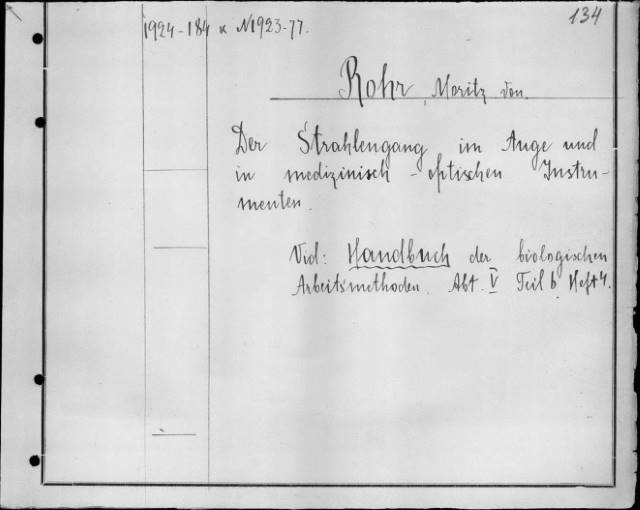 134
1924-184 α N1923-77.
Rohr, Moritz von.
Der Strahlengang im Auge und
in medizinisch-optischen Instru-
menten.
Vid: Handbuch der biologischen
Arbeitsmethoden. Abt. V Teil 6 Heft 4.